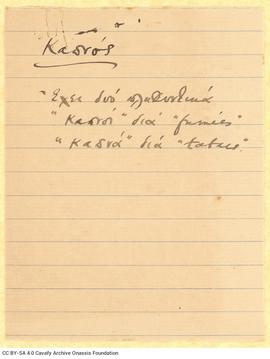 Καπνός
Έχει δυό πληθυντικά
"Καπνοί" διά "fumées"
"Καπνά" διά "tabacs".
CC BY-SA 4.0 Cavafy Archive Onassis Foundation